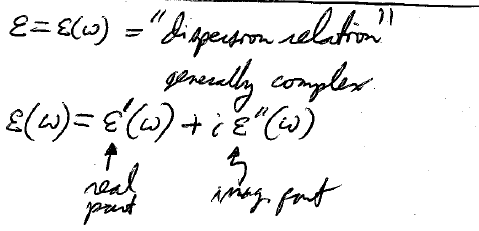 ε = ε(ω) = "dispersion relation"
generally complex
ε(ω) = ε'(ω) + i ε"(ω)
real part
imag. part